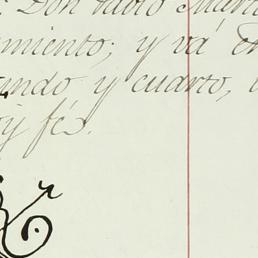 Don Pablo Martí
miento; y vá en
undo y cuarto,
y fé.